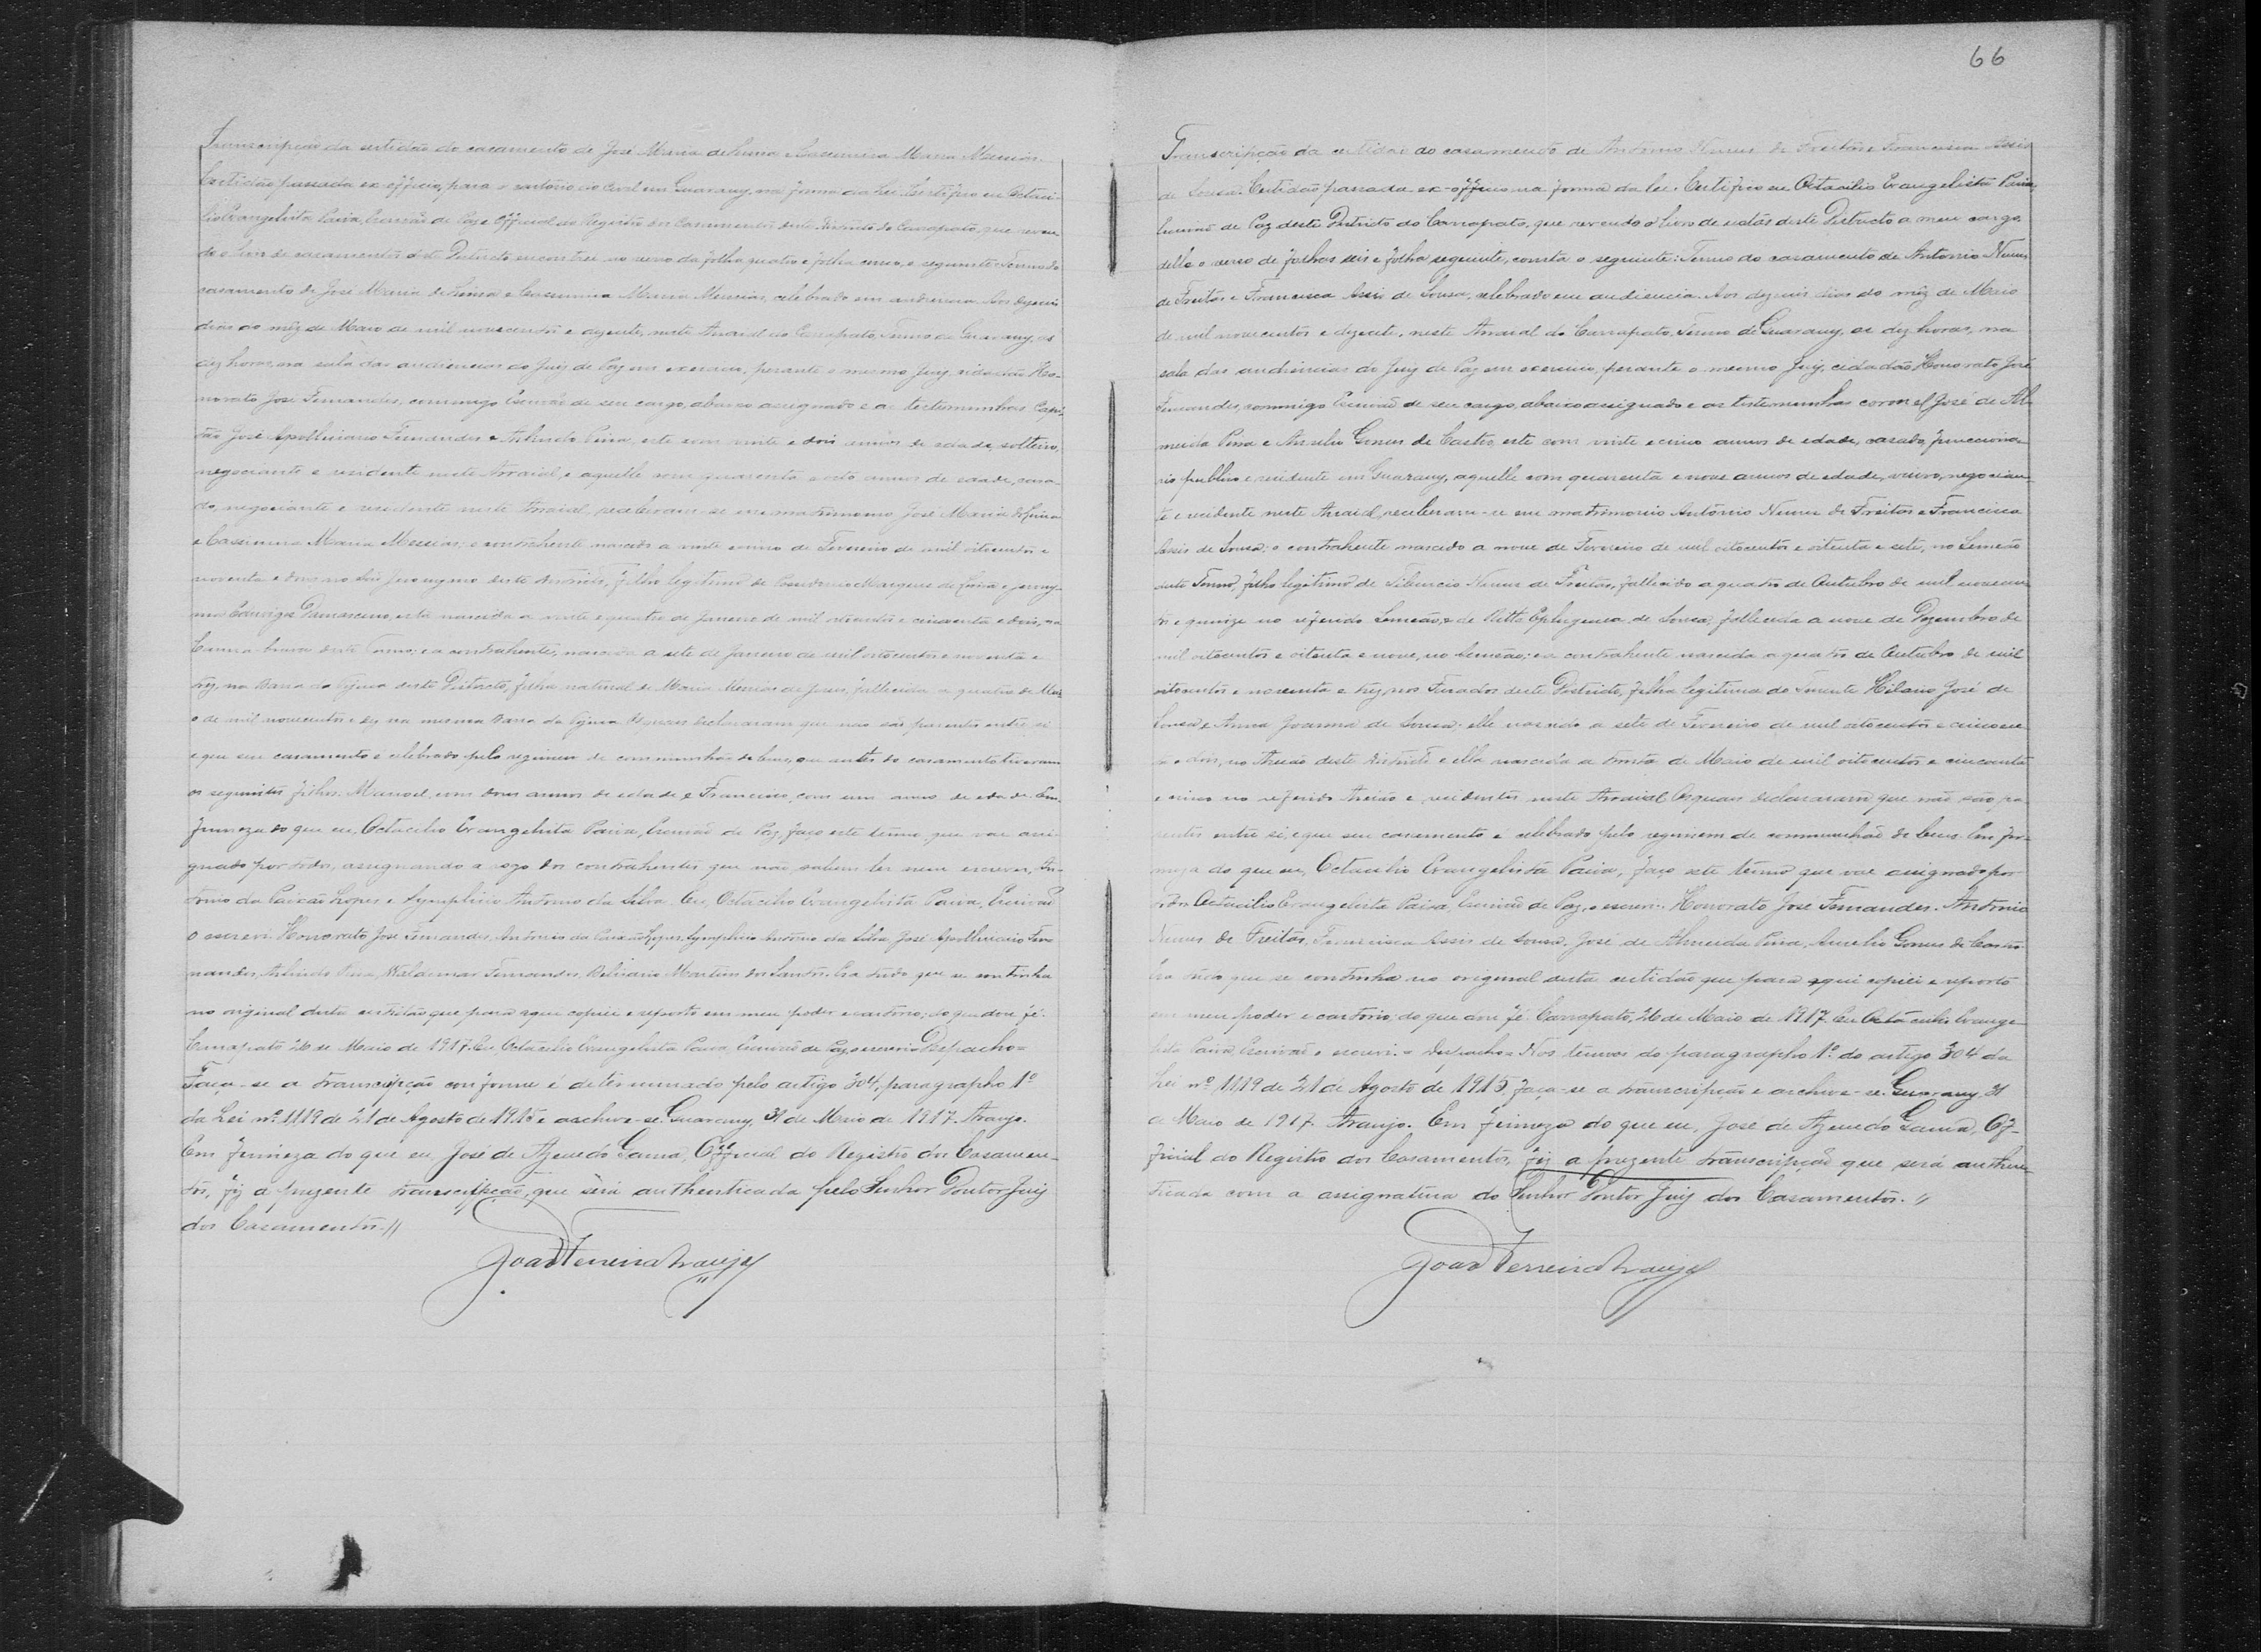 Transcripção da certidão do casamento de José Maria de Lima e Cassimira Maria Messias.
Certidão passada ex-officio, para o cartorio do Civil em Guarany, na forma da lei. Certifico eu Octaci-
lio Evangelista Paiva, Escrivão de Paz e Official do Registro dos Casamentos deste Districto do Carrapato, que reven-
do o livro de casamentos deste Districto encontrei no verso da folha quatro e folha cinco, o seguinte: Termo do
casamento de José Maria de Lima e Cassimira Maria Messias, celebrado em audiencia. Aos dezeseis
dias do mêz de Maio de mil novecentos e dezesete, neste Arraial do Carrapato, Termo de Guarany, as
dez horas, na sala das audiencias do Juiz de Paz em exercicio, perante o mesmo Juiz, cidadão Ho-
norato José Fernandes, commigo Escrivão de seu cargo, abaixo assignado e as testemunhas Capi-
tão José Apollinario Fernandes e Arlindo Pina, este com vinte e dois annos de edade, solteiro,
negociante e residente neste Arraial, e aquelle com quarenta e oito annos de edade, casa-
do, negociante e residente neste Arraial, receberam-se em matrimonio José Maria de Lima
e Cassimira Maria Messias; o contrahente nascido a vinte e cinco de Fevereiro de mil oitocentos e
noventa e dous no São Jeronymo deste districto, filho legitimo de Marques de Lima e Jerony-
ma Damasceno, esta nascida a vinte e quatro de Janeiro de mil oitocentos e cincoenta e dois, na
deste Termo; e a contrahente, nascida a sete de Janeiro de mil oitocentos e noventa e
trez, na Barra do deste Districto, filha natural de Maria Messias de Jesus, fallecida a quatro de Mar-
ço de mil novecentos e dez na mesma Barra do Os quaes declararam que não são parentes entre si
e que seu casamento é celebrado pelo regimen de communhão de bens, que antes do casamento tiveram
os seguintes filhos: Manoel, com dous annos de edade e Francisco, com um anno de edade. Em
firmeza do que eu, Octacilio Evangelista Paiva, Escrivão de Paz, faço este termo, que vae assi-
gnado por todos, assignando a rogo dos contrahentes que não sabem ler nem escrever, An-
tonio da Paixão Lopes e Symplicio Antonio da Silva. Eu, Octacilio Evangelista Paiva, Escrivão
o escrevi. Honorato José Fernandes, Antonio da Paixão Lopes, Symplicio Antonio da Silva, José Apollinario Fer-
nandes, Arlindo Pina, Waldemar Fernandes, Belisario Martins dos Santos. Era tudo que se continha
no original desta certidão que para aqui copiei e reporto em meu poder e cartorio; do que dou fé.
Carrapato 26 de Maio de 1917. Eu, Octacilio Evangelista Paiva, Escrivão de Paz, o escrevi. Despacho =
Faça-se a transcripção conforme é determinado pelo artigo 304, paragrapho 1º
da Lei nº 1119 de 21 de Agosto de 1915 e archive-se. Guarany, 31 de Maio de 1917. Araujo.
Em firmeza do que eu, José de Azevedo Gama, Official do Registro dos Casamen-
tos, fiz a prezente transcripção, que será authenticada pelo Senhor Doutor Juiz
dos Casamentos. //
João Ferreira Araujo
66
Transcripção da certidão do casamento de Antonio Nunes de Freitas e Francisca Assis
de Sousa. Certidão passada ex-officio na forma da lei. Certifico eu Octacilio Evangelista Paiva,
Escrivão de Paz deste Districto do Carrapato, que revendo o livro de notas deste Districto a meu cargo,
delle o verso de folhas seis e folha seguinte, consta o seguinte: Termo do casamento de Antonio Nunes
de Freitas e Francisca Assis de Sousa, celebrado em audiencia. Aos dezeseis dias do mêz de Maio
de mil novecentos e dezesete, neste Arraial do Carrapato, Termo de Guarany, as dez horas, na
sala das audiencias do Juiz de Paz em exercicio, perante o mesmo Juiz, cidadão Honorato José
Fernandes, commigo Escrivão de seu cargo, abaixo assignado e as testemunhas coronel José de Al-
meida Pina e Aurelio Gomes de Castro, este com vinte e cinco annos de edade, casado, funcciona-
rio publico e residente em Guarany, aquelle com quarenta e nove annos de edade, viuvo, negocian-
te e residente neste Arraial, receberam-se em matrimonio Antonio Nunes de Freitas e Francisca
Assis de Sousa; o contrahente nascido a nove de Fevereiro de mil oitocentos e oitenta e sete, no Limeão
deste Termo, filho legitimo de Tiburcio Nunes de Freitas, fallecido a quatro de Outubro de mil novecen-
tos e quinze no referido Limeão, e de Ritta Ephigenia de Sousa, fallecida a nove de Dezembro de
mil oitocentos e oitenta e nove, no Limeão; e a contrahente nascida a quatro de Outubro de mil
oitocentos e noventa e trez, nos Furados deste Districto, filha legitima do Tenente Hilario José de
Sousa e Anna Joanna de Sousa; elle nascido a sete de Fevereiro de mil oitocentos e cincoen-
ta e dois, no deste districto e ella nascida a trinta de Maio de mil oitocentos e cincoenta
e cinco no referido e residentes neste Arraial. Os quaes declararam que não são pa-
rentes entre si, e que seu casamento é celebrado pelo regimem de communhão de bens. Em fir-
meza do que eu, Octacilio Evangelista Paiva, faço este termo que vae assignado por
todos. Octacilio Evangelista Paiva, Escrivão de Paz, o escrevi. Honorato José Fernandes. Antonio
Nunes de Freitas, Francisca Assis de Sousa. José de Almeida Pina, Aurelio Gomes de Castro.
Era tudo que se continha no original desta certidão que para aqui copiei e reporto
em meu poder e cartorio; do que dou fé. Carrapato, 26 de Maio de 1917. Eu Octacilio Evange-
lista Paiva, Escrivão o escrevi. = Despacho = Nos termos do paragrapho 1º. do artigo 304 da
Lei nº 1119 de 21 de Agosto de 1915, faça-se a transcripção e archive-se. Guarany, 31
de Maio de 1917. Araujo. Em firmeza do que eu, José de Azevedo Gama, Of-
ficial do Registro dos Casamentos, fiz a prezente transcripção que será authen-
ticada com a assignatura do Senhor Doutor Juiz dos Casamentos. //
João Ferreira Araujo